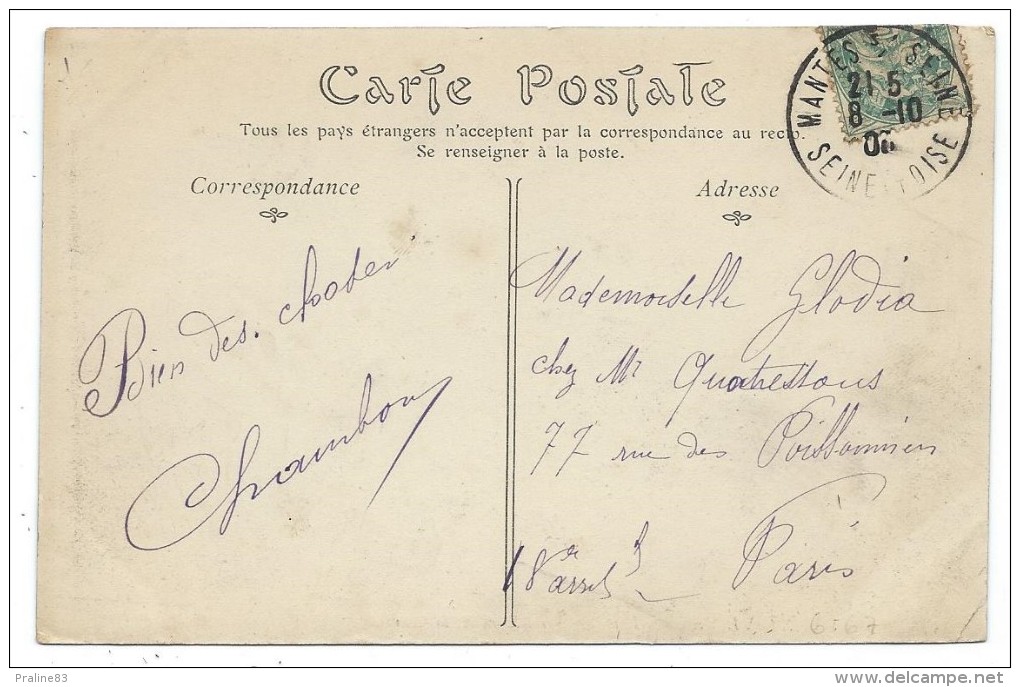 Carte Postale
Tous les pays étrangers n'acceptent par la correspondance au recto.
Se renseigner à la poste.
MANTES S. SEINE
21 5
8 -10
SEINE ET OISE
Correspondance
Adresse
Bien des choses
Chambon
Mademoiselle Glodia
chez Mr Quatressous
77 rue des Poissonniers
18e arrdt
Paris
6767
Praline83
delcampe.net